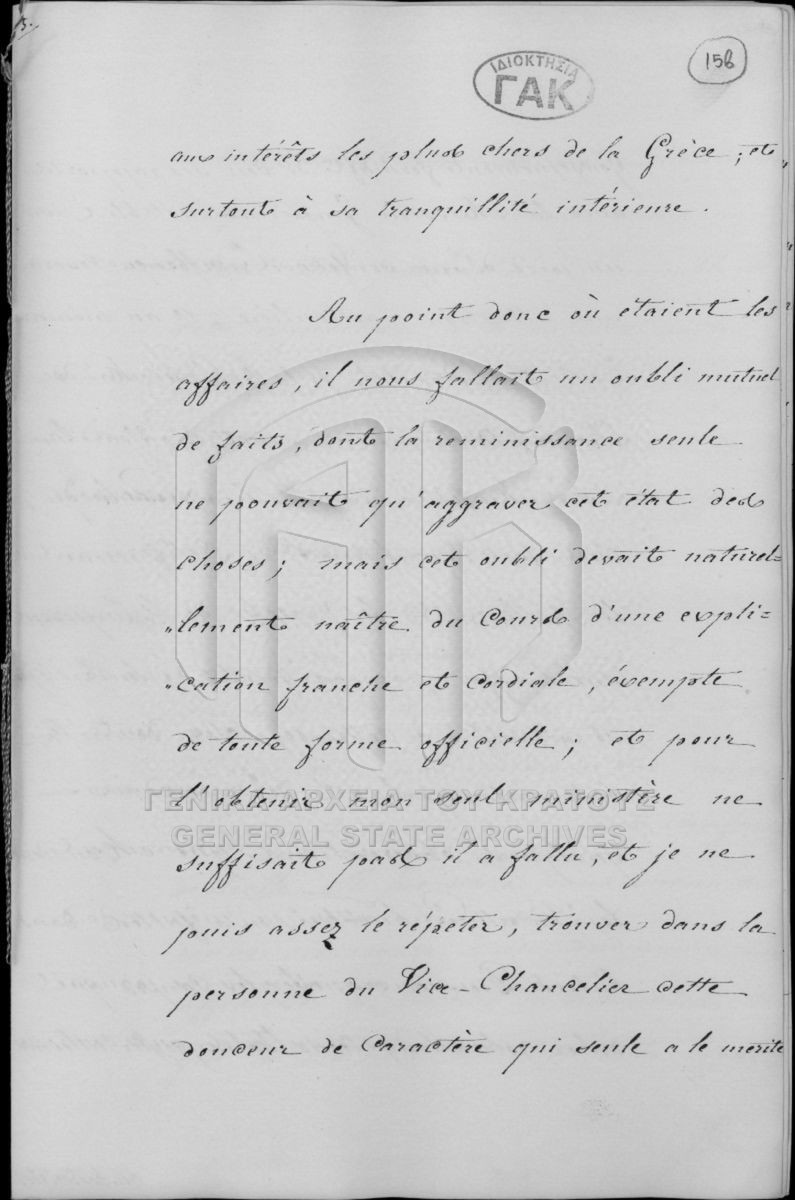 3.
156
ΙΔΙΟΚΤΗΣΙΑ
ΓΑΚ
aux intérêts les plus chers de la Grèce, et
surtout à sa tranquillité intérieure.
Au point donc où étaient les
affaires, il nous fallait un oubli mutuel
de faits, dont la reminissance seule
ne pouvait qu'aggraver cet état des
choses; mais cet oubli devait naturel=
"lement naître du cours d'une expli=
"cation franche et cordiale, éxempte
de toute forme officielle; et pour
l'obtenir mon seul ministère ne
ΓΕΝΙΚΑ ΑΡΧΕΙΑ ΤΟΥ ΚΡΑΤΟΥΣ
GENERAL STATE ARCHIVES
suffisait pas il a fallu, et je ne
puis assez le répeter, trouver dans la
personne du Vice-Chancelier cette
douceur de caractère qui seule a le mérite